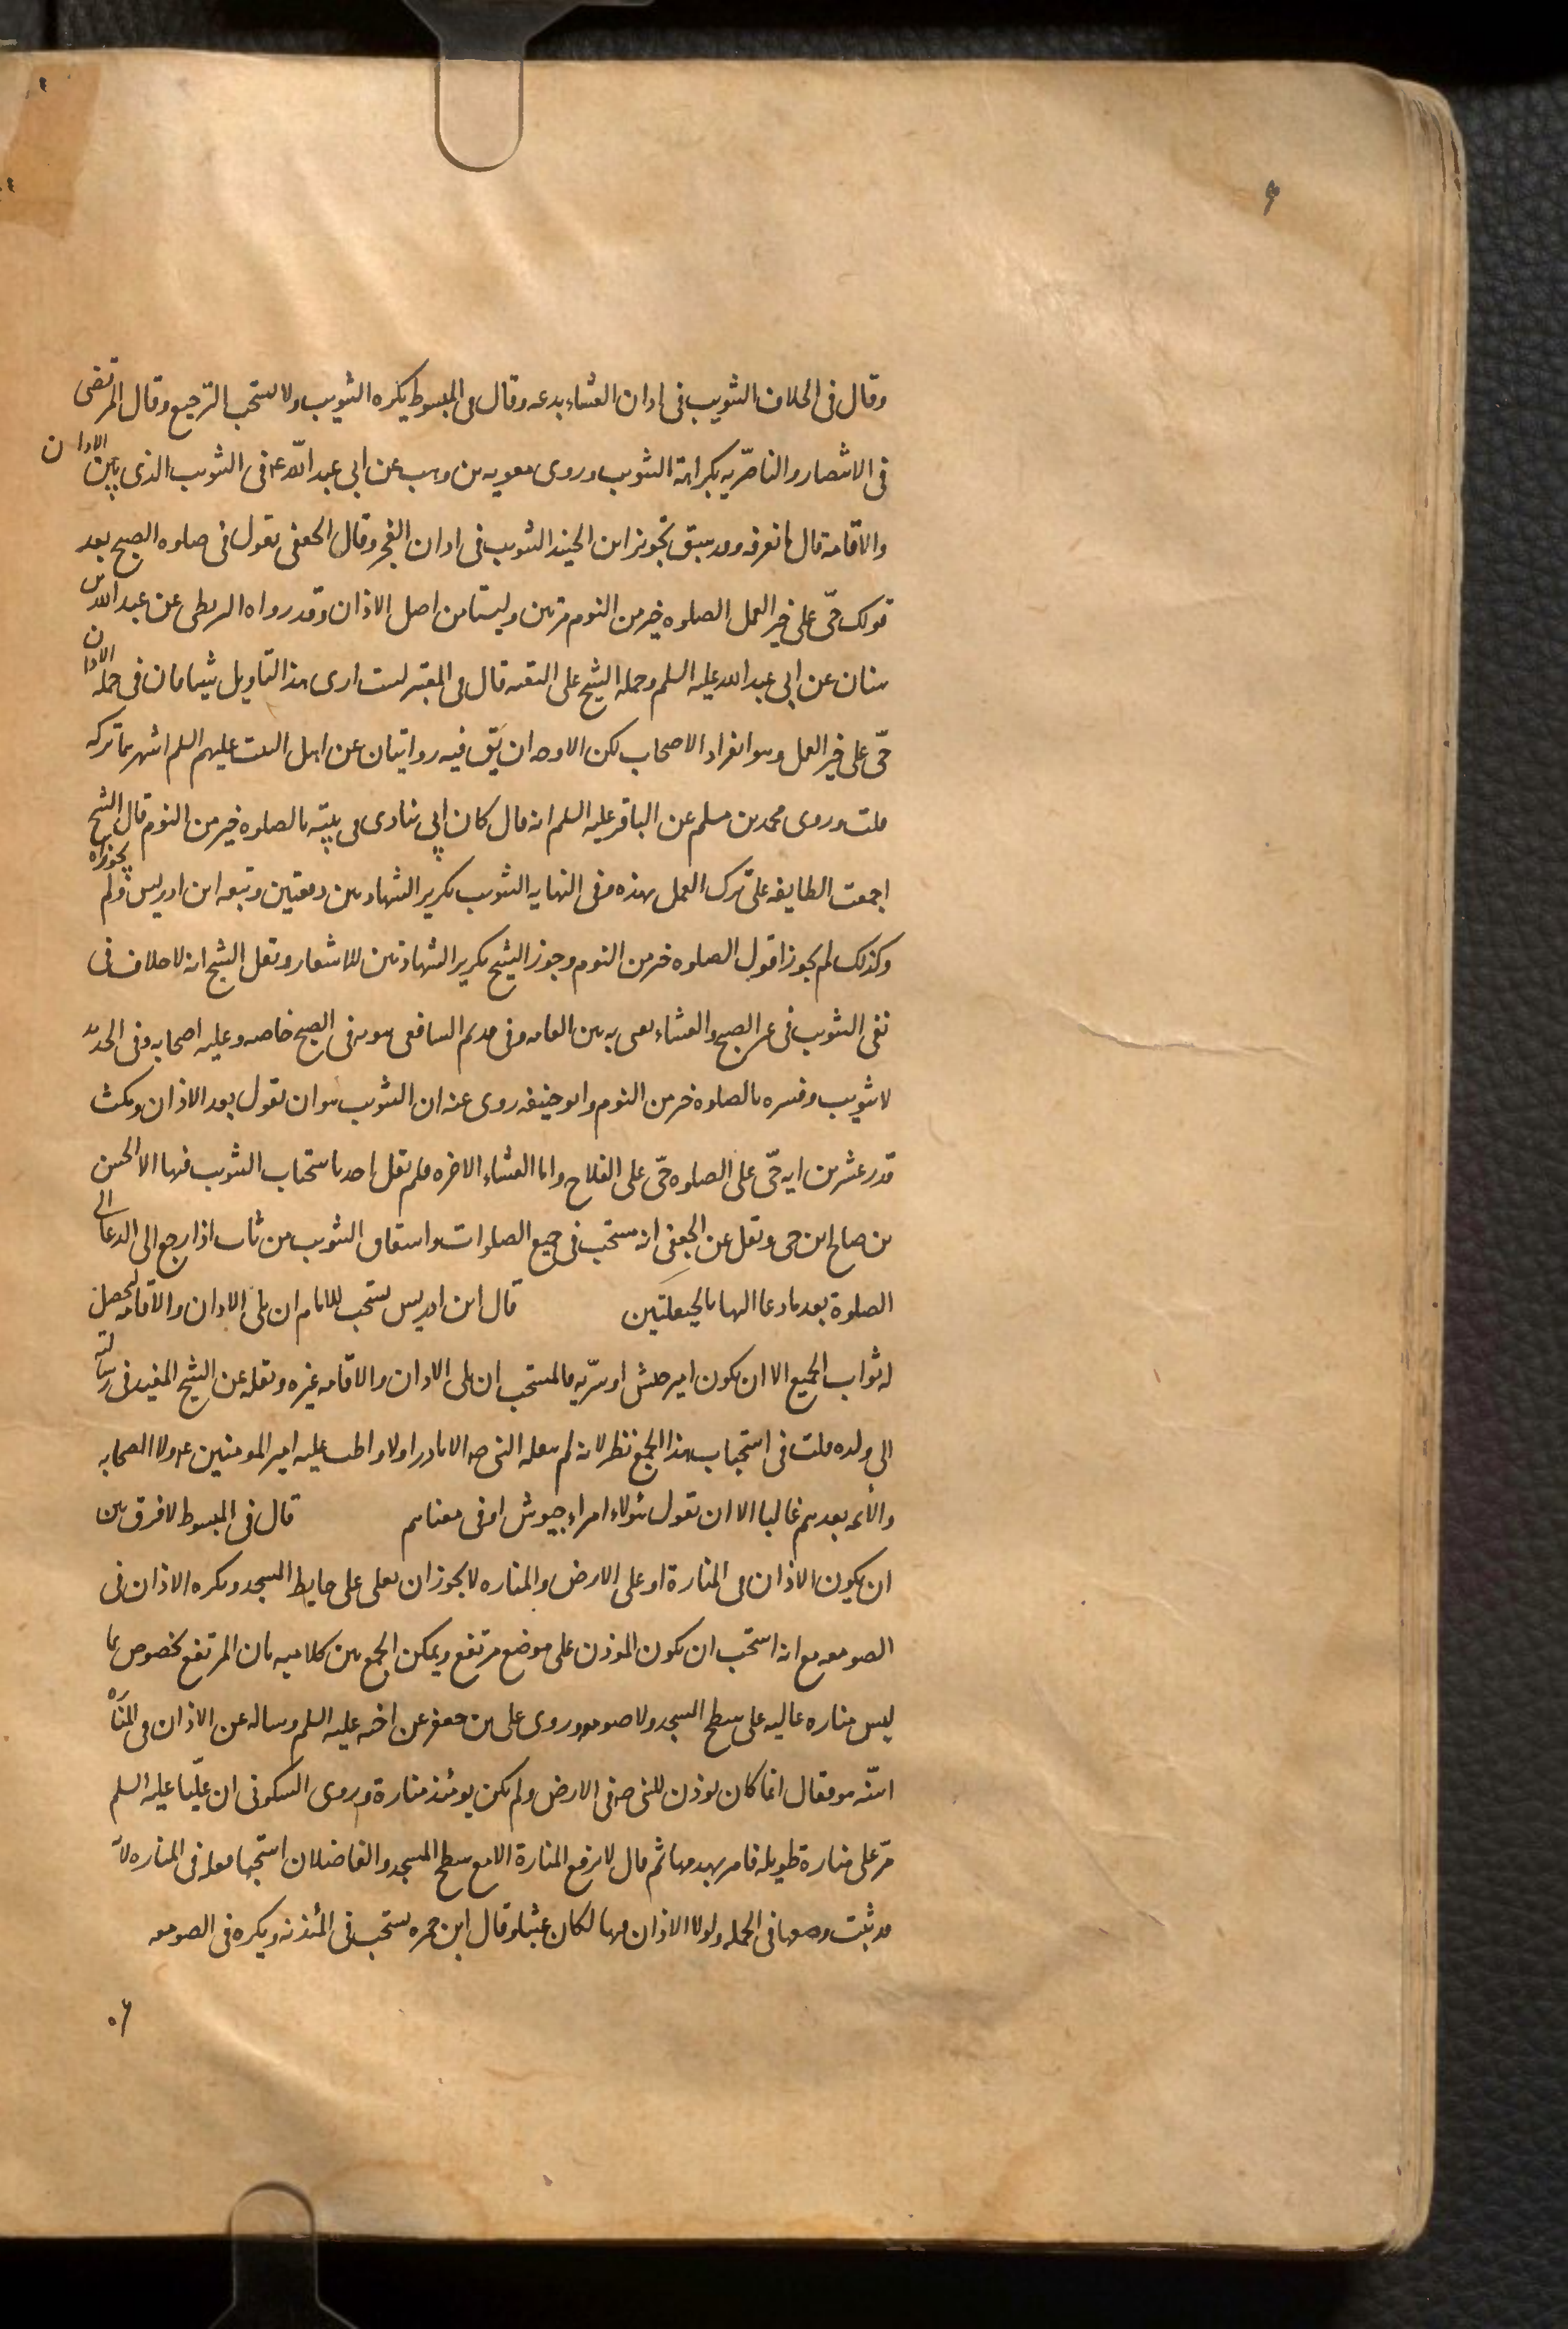 وقال فى الخلاف التثويب فى اذان العشاء بدعه وقال فى المبسوط يكره التثويب ولا يستحب الترجيع وقال المرتضى
فى الانتصار والناصرّيه بكراهة التثويب وروى معويه بن وهب عن ابى عبد اللّه ع فى التثويب الذى بين الاذان
والاقامة قال ما نعرفه وقد سبق تجويز ابن الجنيد التثويب فى اذان الفجر وقال الجعفى تقول فى صلوه الصبح بعد
قولك حّى على خير العمل الصلوه خير من النوم مرتين وليستا من اصل الاذان وقد رواه البزنطى عن عبد الله بن
سنان عن ابى عبد الله عليه السلم وحمله الشيخ على التقيه قال فى المعتبر لست ارى هذا التاويل شيئا فان فى جمله الاذان
حّى على خير العمل وهو انفراد الاصحاب لكن الاوجه ان يقّ فيه روايتان عن اهل البيت عليهم السلم اشهرهما تركه
قلت وروى محمد بن مسلم عن الباقر عليه السلم انه قال كان ابى ينادى فى بيته بالصلوه خير من النوم قال الشيخ
اجمعت الطايفه على ترك العمل بهذه وفى النهايه التثويب تكرير الشهادتين دفعتين وتبعه ابن ادريس ولم يجوزاه
وكذلك لم يجوزا قول الصلوه خير من النوم وجوز الشيخ تكرير الشهادتين للاشعار ونقل الشيخ انه لا خلاف فى
نفى التثويب فى غير الصبح والعشاء يعنى به بين العامه وفى قديم الشافعى ثبوته فى الصبح خاصه وعليه اصحابه وفى الجديد
لا تثويب وفسره بالصلوه خير من النوم وابو حنيفه روى عنه ان التثويب هو ان تقول بعد الاذان ومكث
قدر عشرين ايه حّى على الصلوه حّى على الفلاح واما العشاء الاخره فلم يقل احد باستحباب التثويب فيها الا الحسن
بن صالح ابن حى ونقل عن الجعفى انه مستحب فى جميع الصلوات واشتقاق التثويب من ثاب اذا رجع الى الدعا الى
الصلوة بعد ما دعا اليها بالحيعلتين قال ابن ادريس يستحب للامام ان يلى الاذان والاقامه ليحصل
له ثواب الجميع الا ان يكون امير جيش او سرّيه فالمستحب ان يلى الاذان والاقامه غيره ونقله عن الشيخ المفيد فى رسالته
الى ولده قلت فى استحباب هذا الجمع نظر لانه لم يفعله النبى صه الا نادرا ولا واظب عليه امير المومنين ع ولا الصحابه
والأئمه بعدهم غالبا الا ان تقول هؤلاء امراء جيوش او فى معناهم قال فى المبسوط لا فرق بين
ان يكون الاذان فى المنارة او على الارض والمناره لا يجوز ان تعلى على حايط المسجد ويكره الاذان فى
الصومعه مع انه استحب ان يكون الموذن على موضع مرتفع ويمكن الجمع بين كلاميه بان المرتفع مخصوص بما
ليس مناره عاليه على سطح المسجد ولا صومعه وروى على بن جعفر عن اخيه عليه السلم وساله عن الاذان فى المناره
اسنّه هو فقال انما كان يوذن للنبى صه فى الارض ولم يكن يومئذ منارة وروى السكونى ان علّيا عليه السلم
مرّ على منارة طويله فامر بهدمها ثم قال لا ترفع المنارة الا مع سطح المسجد والفاضلان استحبا فعله فى المناره لانه
قد ثبت وضعها فى الجمله ولولا الاذان فيها لكان عبثا وقال ابن حمزه يستحب فى المئذنه ويكره فى الصومعه